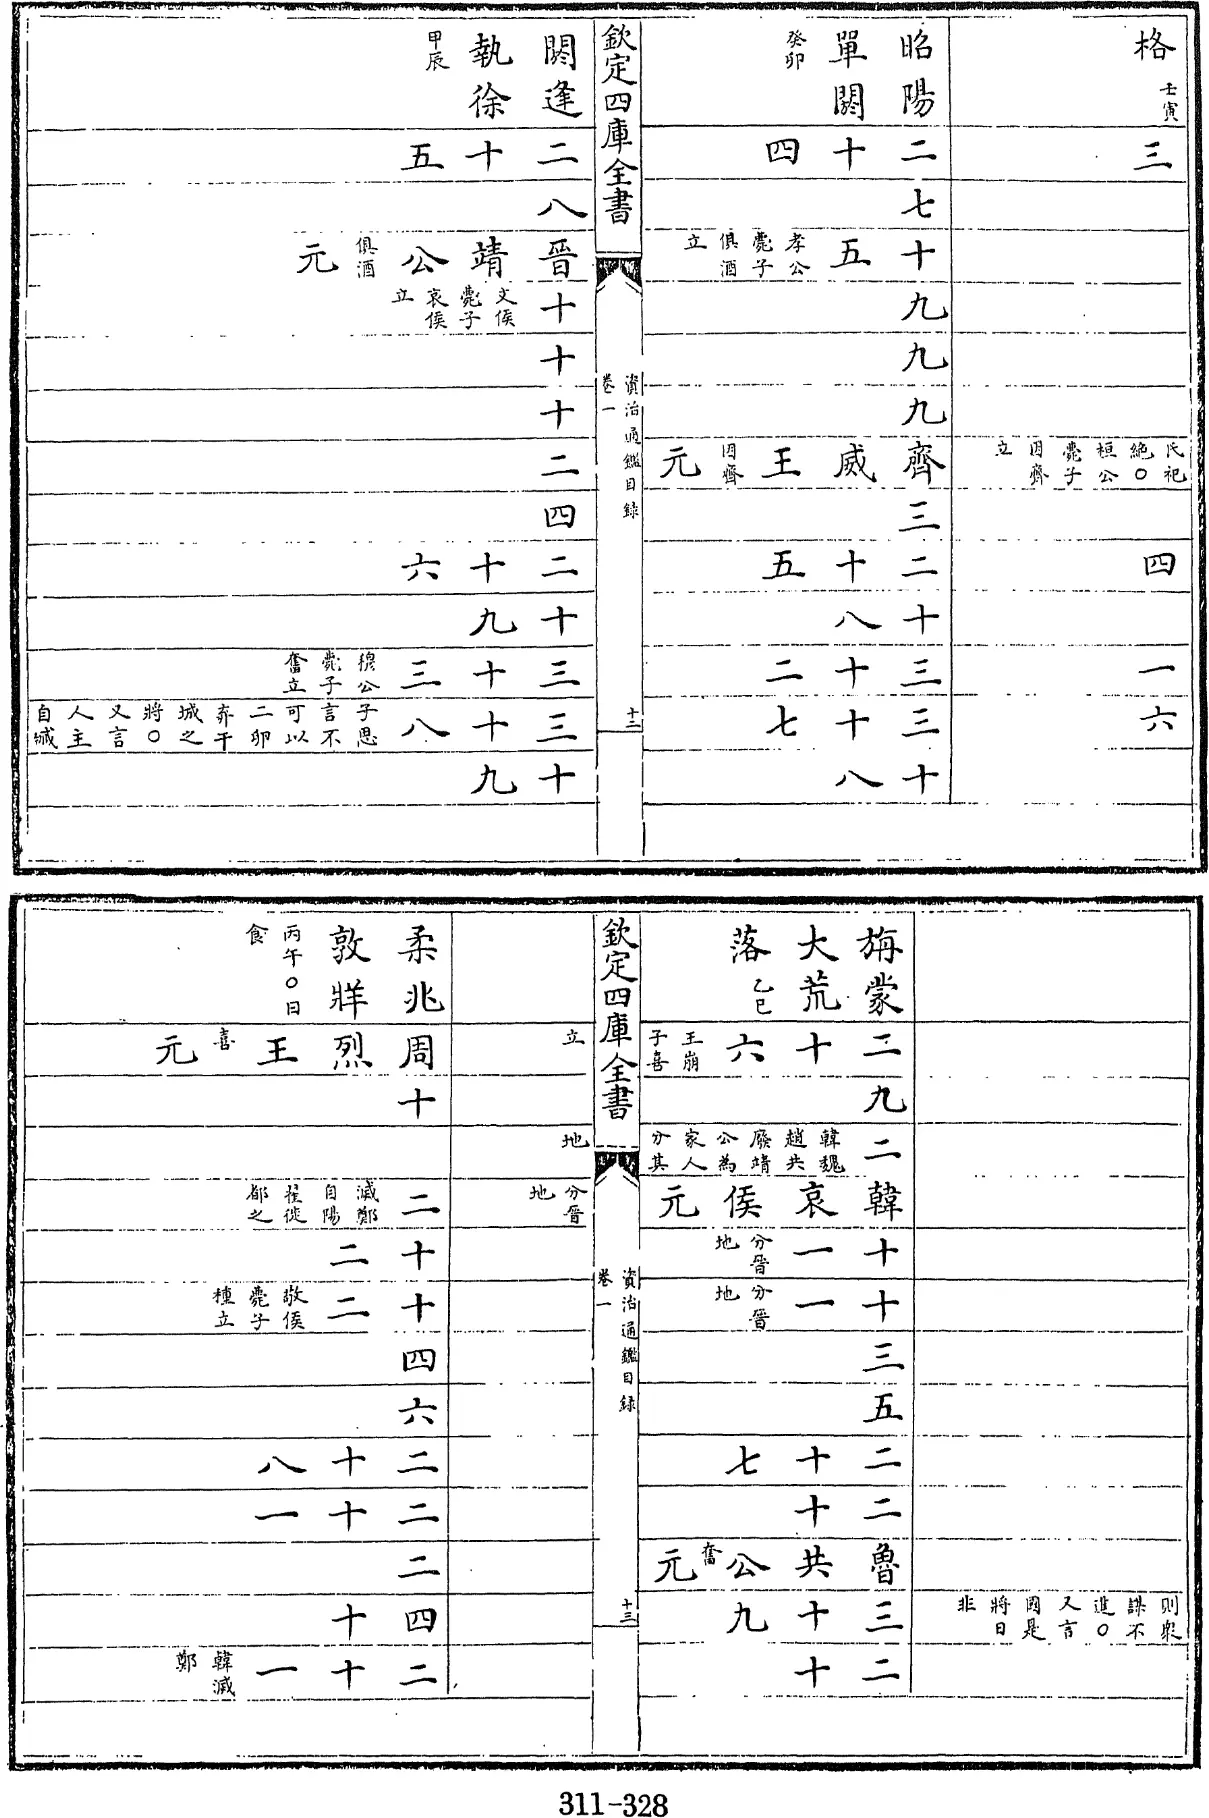 格 壬寅
三
氏祀絶○桓公薨子因齊立
四
一
六
昭陽單閼 癸卯
二十四
七
十五 孝公薨子俱酒立
九
九
九
齊威王因齊元
三
二十五
十八
三十二
三十七
十八
欽定四庫全書
資治通鑑目録
卷一
十二
閼逢執徐 甲辰
二十五
八
晉靖公俱酒元
十 文侯薨子哀侯立
十
十
二
四
二十六
十九
三十三 穆公薨子奮立
三十八 子思言不可以二卵弃干城之將○又言人主自臧
十九
則衆謀不進○又言國是將日非
旃蒙大荒落 乙巳
二十六 王崩子喜立
九
二 韓魏趙共廢靖公為家人分其地
韓哀侯元 分晉地
十一 分晉地
十一 分晉地
三
五
二十七
二十
魯共公奮元
三十九
二十
欽定四庫全書
資治通鑑目録
卷一
十三
柔兆敦牂 丙午○日食
周烈王喜元
十
二 滅鄭自陽翟徙都之
十二
十二 敬侯薨子種立
四
六
二十八
二十一
二
四十
二十一 韓滅鄭
311-328